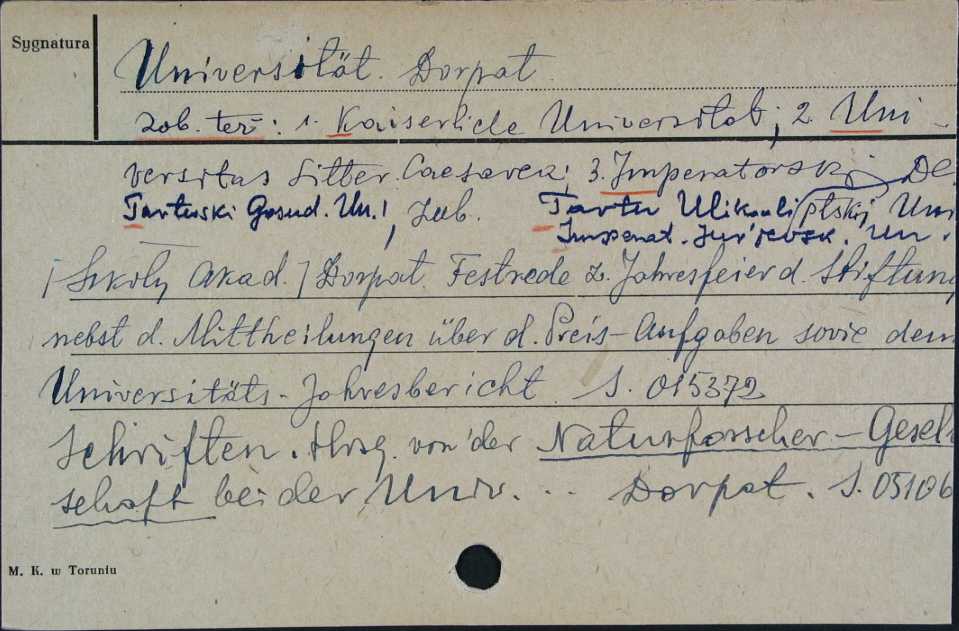 Sygnatura
Universität. Dorpat
zob. też: 1. Kaiserliche Universität; 2. Uni-
versitas Litter. Caesarea; 3. Imperatorskij De
Tartuski Gosud. Un.!, Jub. Tartu Ulikooli ptskij Uni
Imperat. Jur'jevsk. Un.
[Szkoły Akad.] Dorpat. Festrede z. Jahresfeier d. Stiftung
nebst d. Mittheilungen über d. Preis-Aufgaben sowie dem
Universitäts-Jahresbericht S. 015372
Schriften. Hrsg. von der Naturforscher-Gesell
schaft bei der Univ. ... Dorpat. S. 05106
M. K. w Toruniu